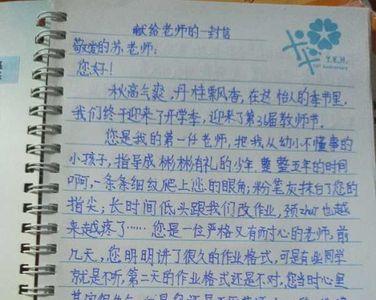 献给老师的一封信
敬爱的苏老师:
您好!
秋高气爽,丹桂飘香,在这怡人的季节里,
我们终于迎来了开学季,迎来了第36届教师节。
您是我的第一任老师,把我从幼小不懂事的
小孩子,指导成彬彬有礼的少年,整整五年的时间
啊,一条条细纹爬上您的眼角;粉笔灰抹白了您的
指尖;长时间低头跟我们改作业,颈zhuī也越
来越疼了……您是一位严格又有耐心的老师,前
几天,您明明讲了很久的作业格式,可是有些同学
就是不听,第二天的作业格式还是不对,您当时心里
Y.E.H.
Anniversary